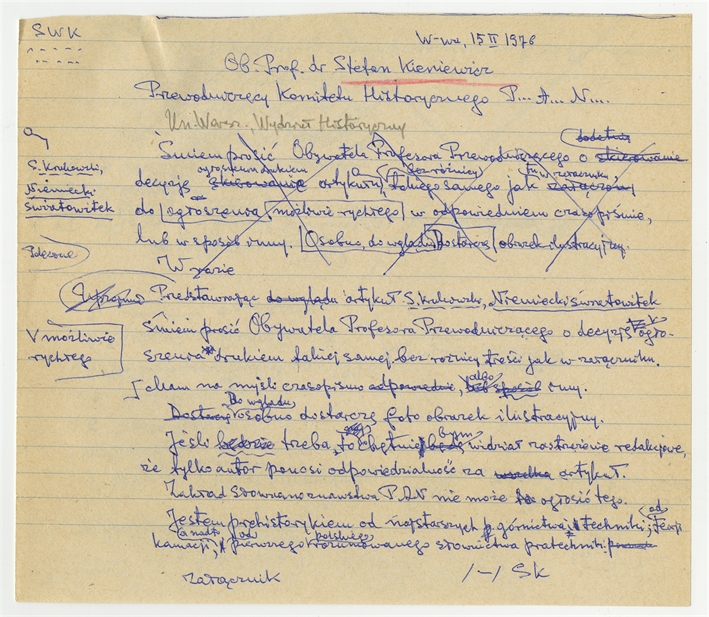 SWK
W-wa, 15 II 1976
Ob. Prof. dr Stefan Kieniewicz
Przewodniczący Komitetu Historycznego P... A... N...
Un. Warsz. Wydział Historyczny
Śmiem prosić Obywatela Profesora Przewodniczącego o skierowanie
ogłoszeniem drukiem
bez różnicy
decyzję skierowanie artykułu, takiego samego jak załączony
do ogłoszenia możliwie rychłego w odpowiedniem czasopiśmie,
lub w sposób inny. Osobno, do wglądu dostarczę obrazek ilustracyjny.
W razie
S. Krukowski,
Niemiecki
światowitek
Przedstawiając do wglądu artykuł S. Krukowski, Niemiecki światowitek
śmiem prosić Obywatela Profesora Przewodniczącego o decyzję ogło-
szenia drukiem takiej samej bez różnicy treści jak w załączniku.
V możliwie
rychłego
Mam na myśli czasopismo odpowiednie, albo lub sposób inny.
Do wglądu
Dostarczę osobno dostarczę foto obrazek ilustracyjny.
Jeśli będzie trzeba, to chętnie bym widział zastrzeżenie redakcyjne,
że tylko autor ponosi odpowiedzialność za artykuł.
Zakład Słowianoznawstwa PAN nie może ogłosić tego.
Jestem prehistorykiem od najstarszych górnictwa i techniki, od
a nadto od polskiego
kamacji, pierwszego rozumowanego słownictwa pratechniki
załącznik
/-/ SK